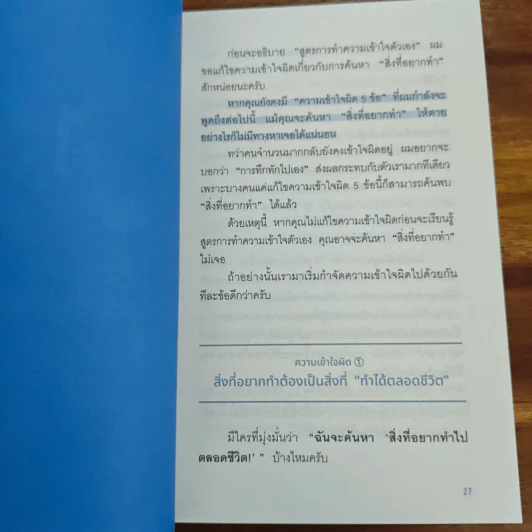 ก่อนจะอธิบาย “สูตรการทำความเข้าใจตัวเอง” ผม
ขอแก้ไขความเข้าใจผิดเกี่ยวกับการค้นหา “สิ่งที่อยากทำ”
สักหน่อยนะครับ
หากคุณยังคงมี “ความเข้าใจผิด 5 ข้อ” ที่ผมกำลังจะ
พูดถึงต่อไปนี้ แม้คุณจะค้นหา “สิ่งที่อยากทำ” ให้ตาย
อย่างไรก็ไม่มีทางหาเจอได้แน่นอน
ทว่าคนจำนวนมากกลับยังคงเข้าใจผิดอยู่ ผมอยากจะ
บอกว่า “การทึกทักไปเอง” ส่งผลกระทบกับตัวเรามากทีเดียว
เพราะบางคนแค่แก้ไขความเข้าใจผิด 5 ข้อนี้ก็สามารถค้นพบ
“สิ่งที่อยากทำ” ได้แล้ว
ด้วยเหตุนี้ หากคุณไม่แก้ไขความเข้าใจผิดก่อนจะเรียนรู้
สูตรการทำความเข้าใจตัวเอง คุณอาจจะค้นหา “สิ่งที่อยากทำ”
ไม่เจอ
ถ้าอย่างนั้นเรามาเริ่มกำจัดความเข้าใจผิดไปด้วยกัน
ทีละข้อดีกว่าครับ
ความเข้าใจผิด ①
สิ่งที่อยากทำต้องเป็นสิ่งที่ “ทำได้ตลอดชีวิต”
มีใครที่มุ่งมั่นว่า “ฉันจะค้นหา ‘สิ่งที่อยากทำไป
ตลอดชีวิต!’ ” บ้างไหมครับ
27